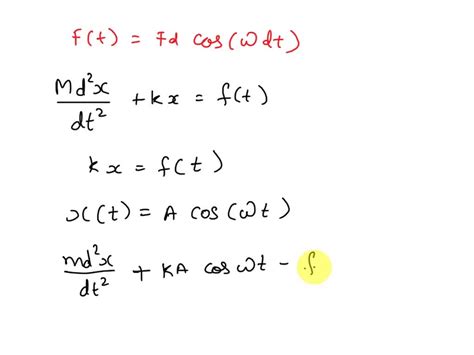 F(t) = Fd cos(ωdt)
Md²x/dt² + kx = f(t)
kx = f(t)
x(t) = A cos(ωt)
md²x/dt² + KA cos ωt - f